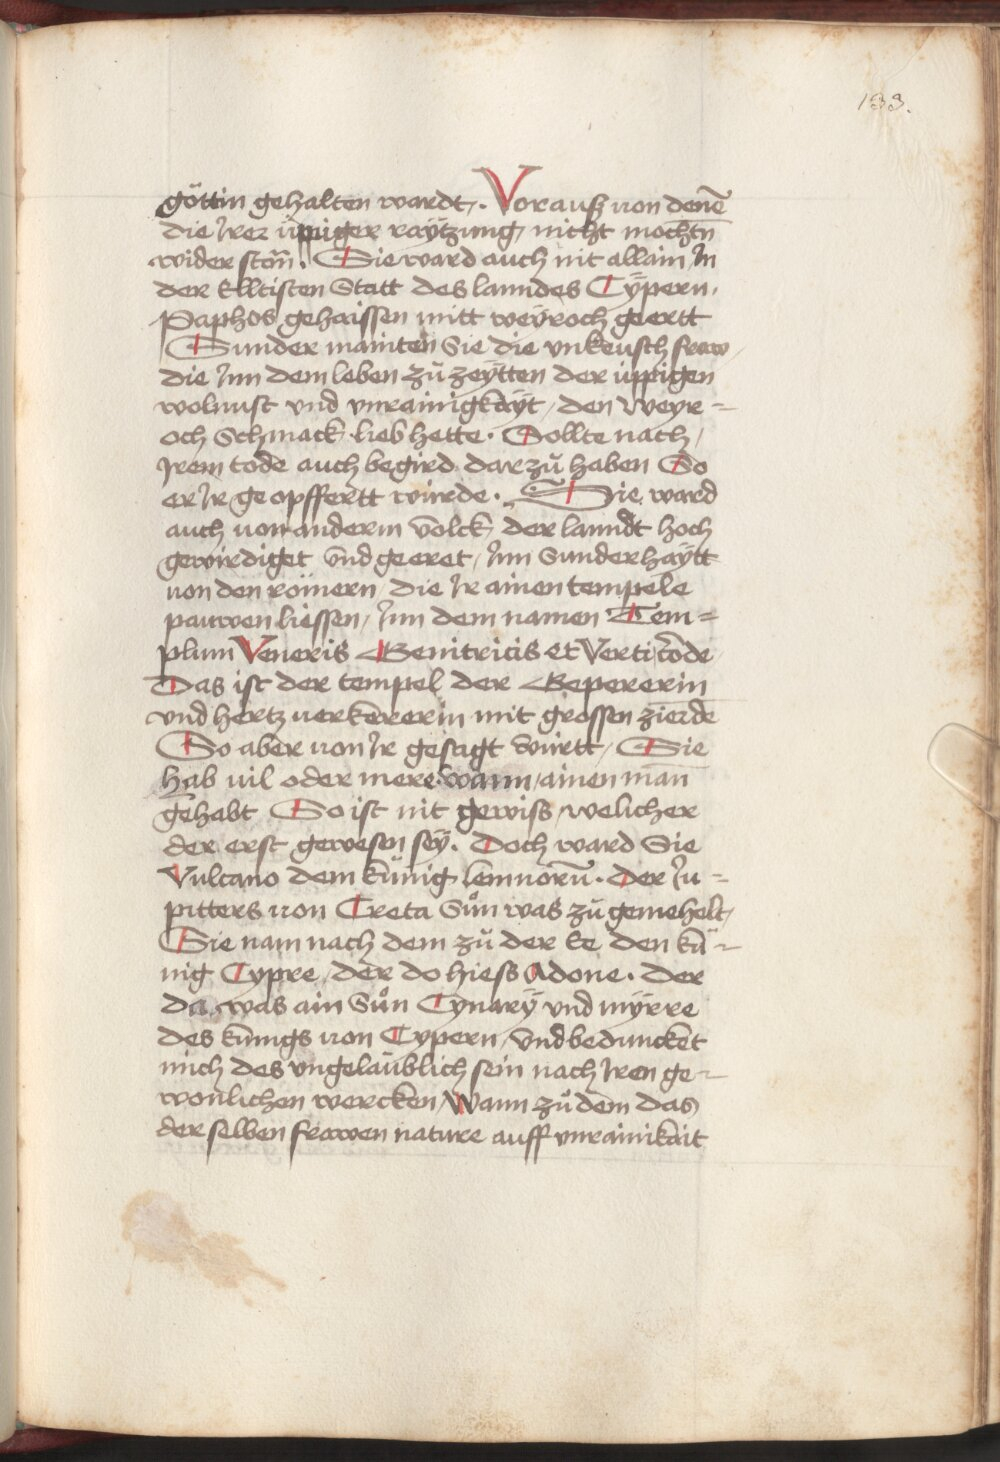 133.
göttin gehalten wardt. Vorausz von denē
die Irer üppiger raÿtzung, nicht mochtn̄
wider stan̄. Sie ward auch nit allain In
der Elltisten Statt des lanndes Cÿpern.
Paphos gehaissen mitt weÿroch geertt
Sunder mainten Sie die vnkeusch fraw
die Inn dem leben zů zeÿtten der üppigen
wolnust vnd vnrainigkäyt, den Weyr=
och Schmack lieb hette. Sollte nach,
Irem tode auch begird dar zů haben So
er Ir ge opffertt würde. Sie ward
auch von anderm volck der lanndt hoch
gewirdiget vnd ge eret, Inn Sunderhaÿtt
von den römern die Ir ainen tempele
pauwen liessen, Inn dem namen Tem=
plum Veneris Genitricis et Verticōde
Das ist der tempel der Gepererin
vnd hertz verkererin mit grossen zierdē
So aber von Ir gesagt württ, Sie
hab vil oder mere wann, ainen man̄
gehabt So ist nit gewiss welicher
der erst gewesen seÿ. Doch ward Sie
Vulcano dem künig lemnorū. der Iu=
pitters von Creta Sůn was zů gemehelt,
Sie nam nach dem zů der Ee den kü=
nig Cypre, der do hiess Adone. der
da was ain Sůn Cynarÿ vnd mÿrre
des künigs von Cypern, vnd beduncket
mich des vngeläublich sein nach Iren ge=
wonlichen wercken, Wann zů dem das
der selben frawen nature auff vnrainikäit